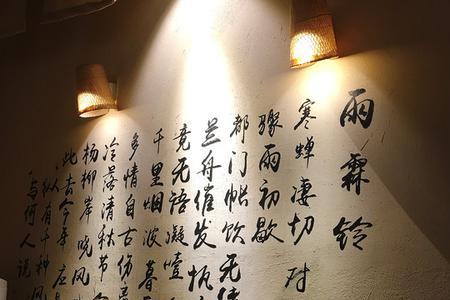 雨霖铃
寒蝉凄切 对
骤雨初歇
都门帐饮无绪
兰舟催发 执
竟无语凝噎
千里烟波 暮
多情自古伤
冷落清秋节
杨柳岸 晓风
此去经年 应
纵有千种风
与何人说